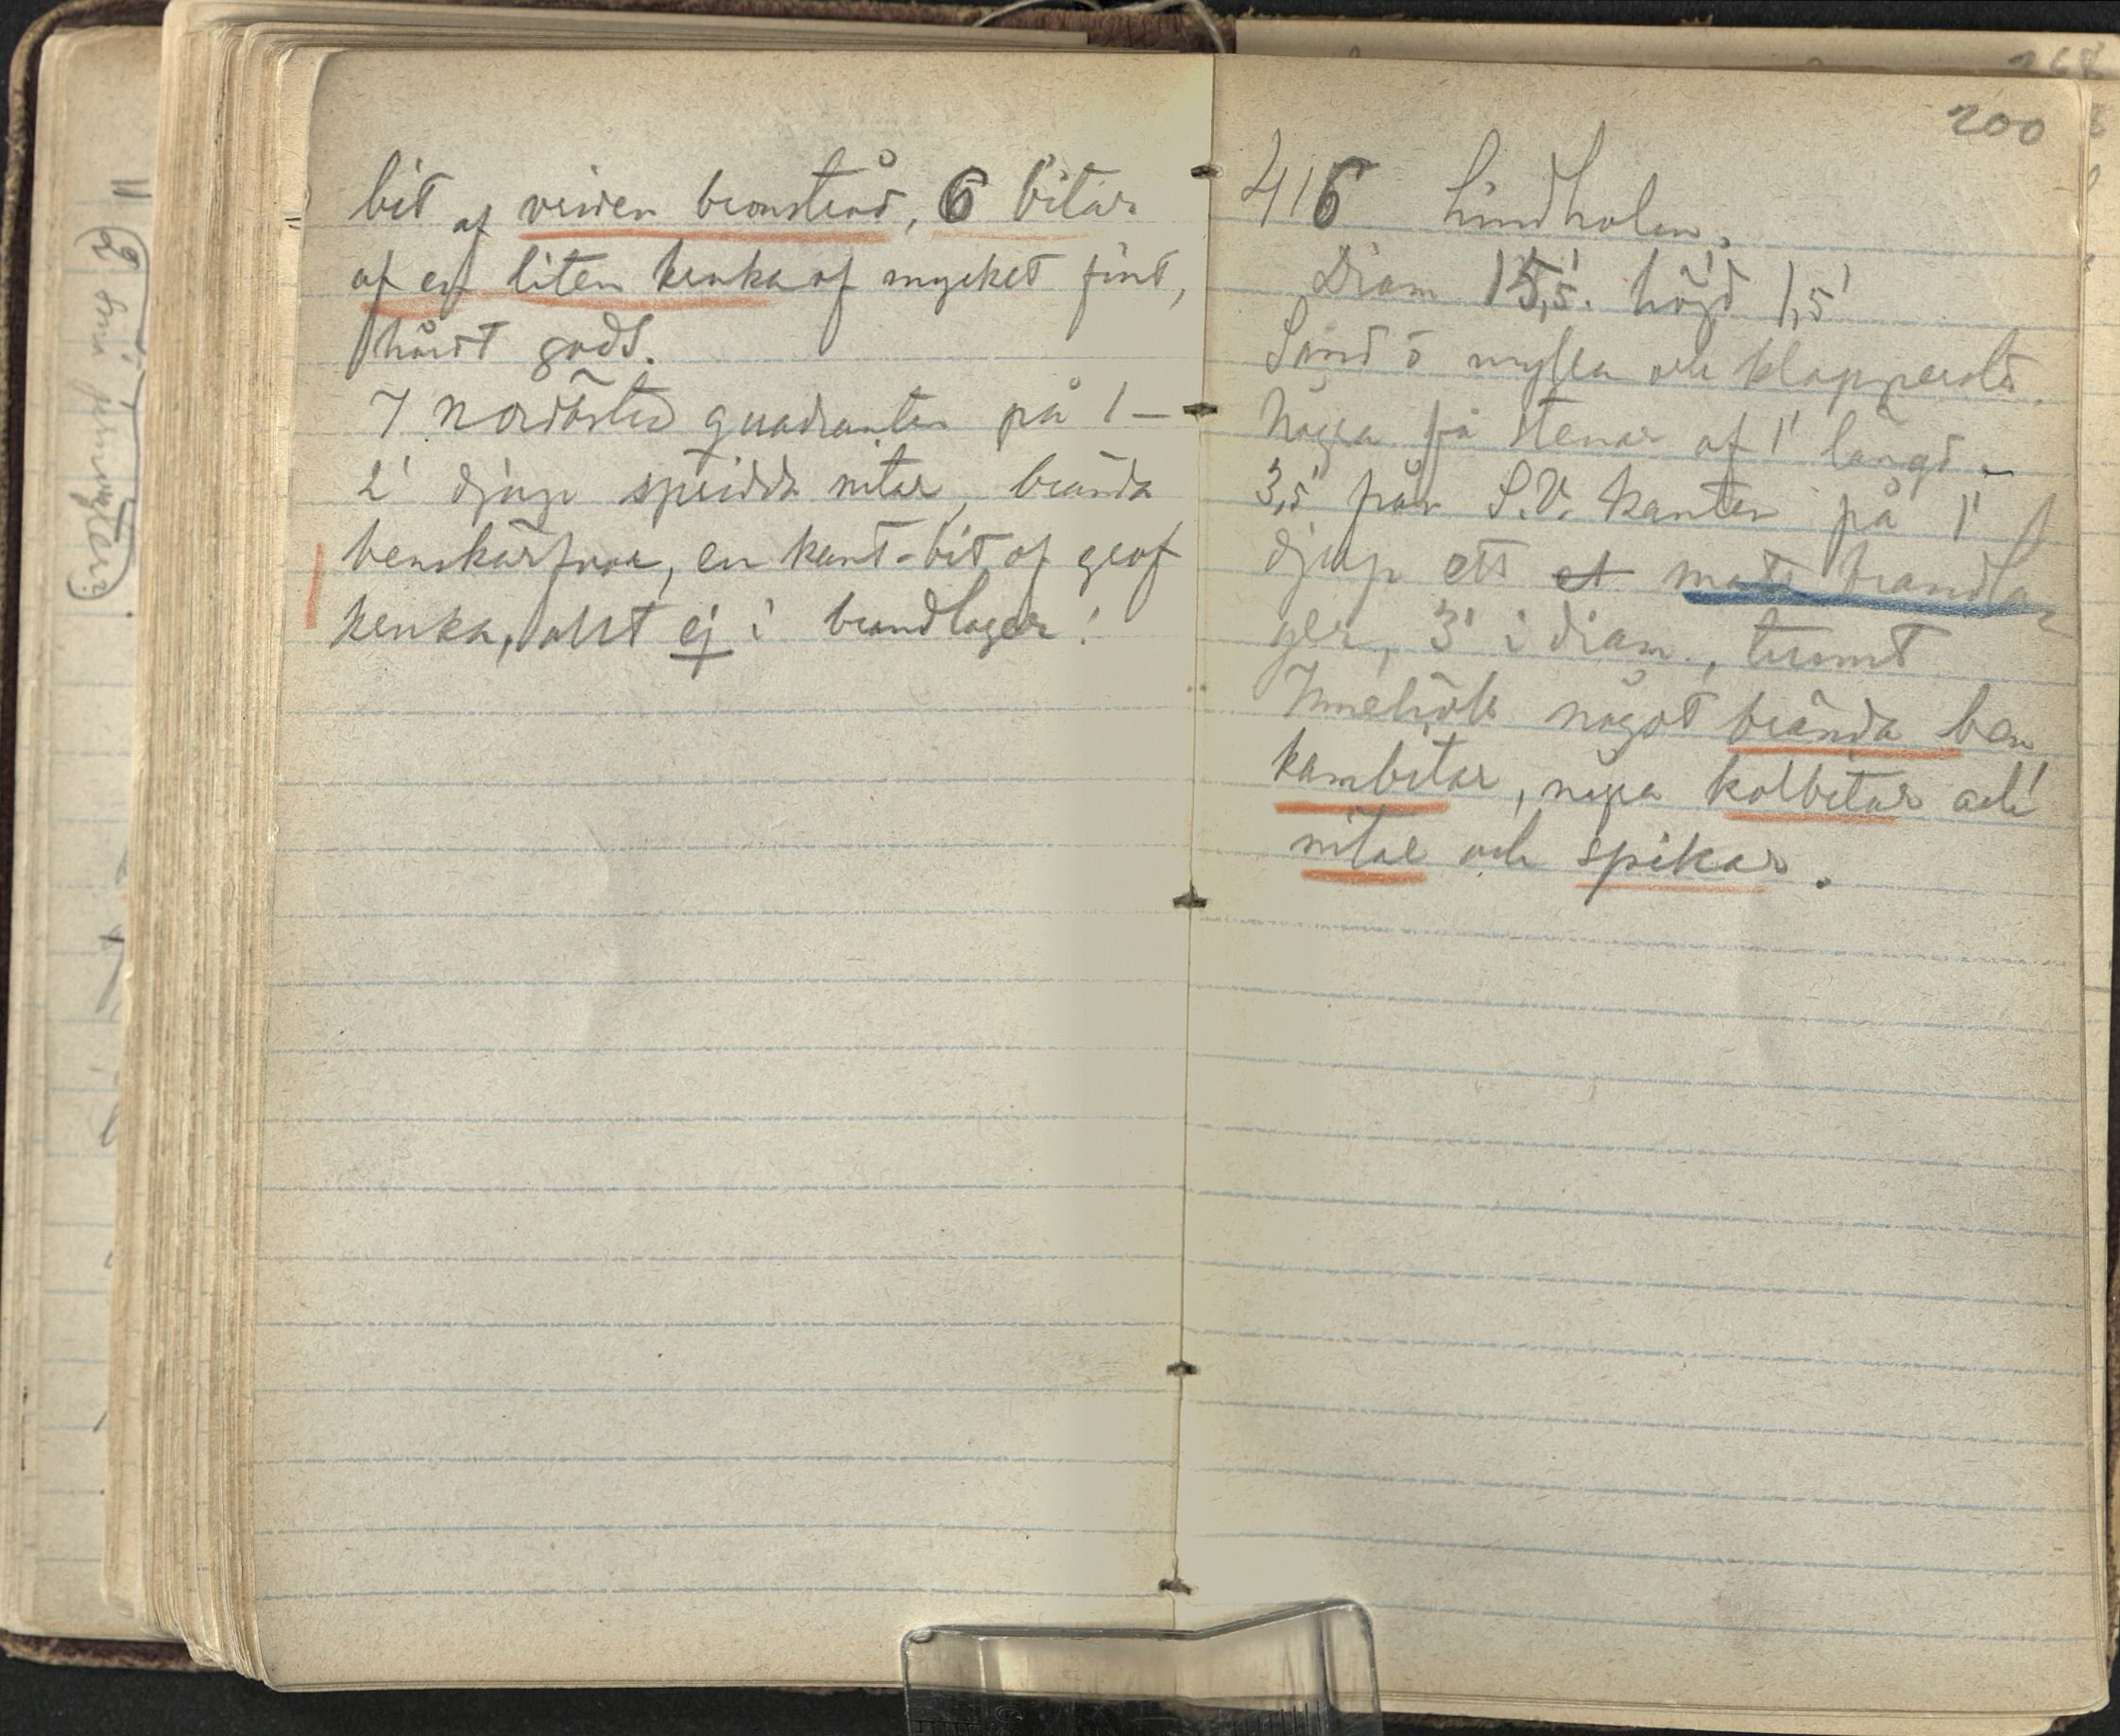 bit af vriden bronstråd, 6 bitar
af en liten kruka af mycket fint,
hårdt gods.
I nordöstra quadranten på 1 –
2' djup spridda nitar, brända
benskärfvor, en kant-bit af grof
kruka, allt ej i brandlager!
200
416 Lindholm.
Diam 15,5'. höjd 1,5'
Sand o mylla och klappersten.
Några få stenar af 1' längd –
3,5' från S.V. kanten på 1'
djup ett et matt brandla
ger, 3' i diam., tunnt
Innehöll något brända ben
kambitar, några kolbitar och
nitar och spikar.